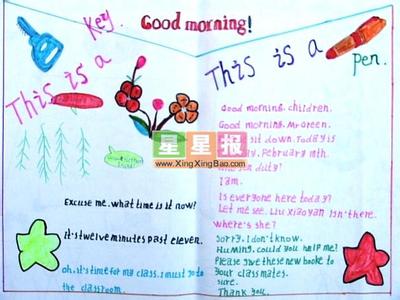 Good morning!
Key.
This is a
This is a
Pen.
星星报
www.XingXingBao.com
Excuse me. what time is it now?
it's twelve minutes past eleven.
oh. it's time for my class. I must go to
the classroom.
Good morning, children.
Good morning. Mr Green.
sit down. Today is
February
duty?
I am.
Is everyone here today?
Let me see. Liu Xiaoyan isn't there.
where's she?
Sorry. I don't know.
HuMing. could you help me?
Please give these new booke to
your classmates.
sure.
Thank you.